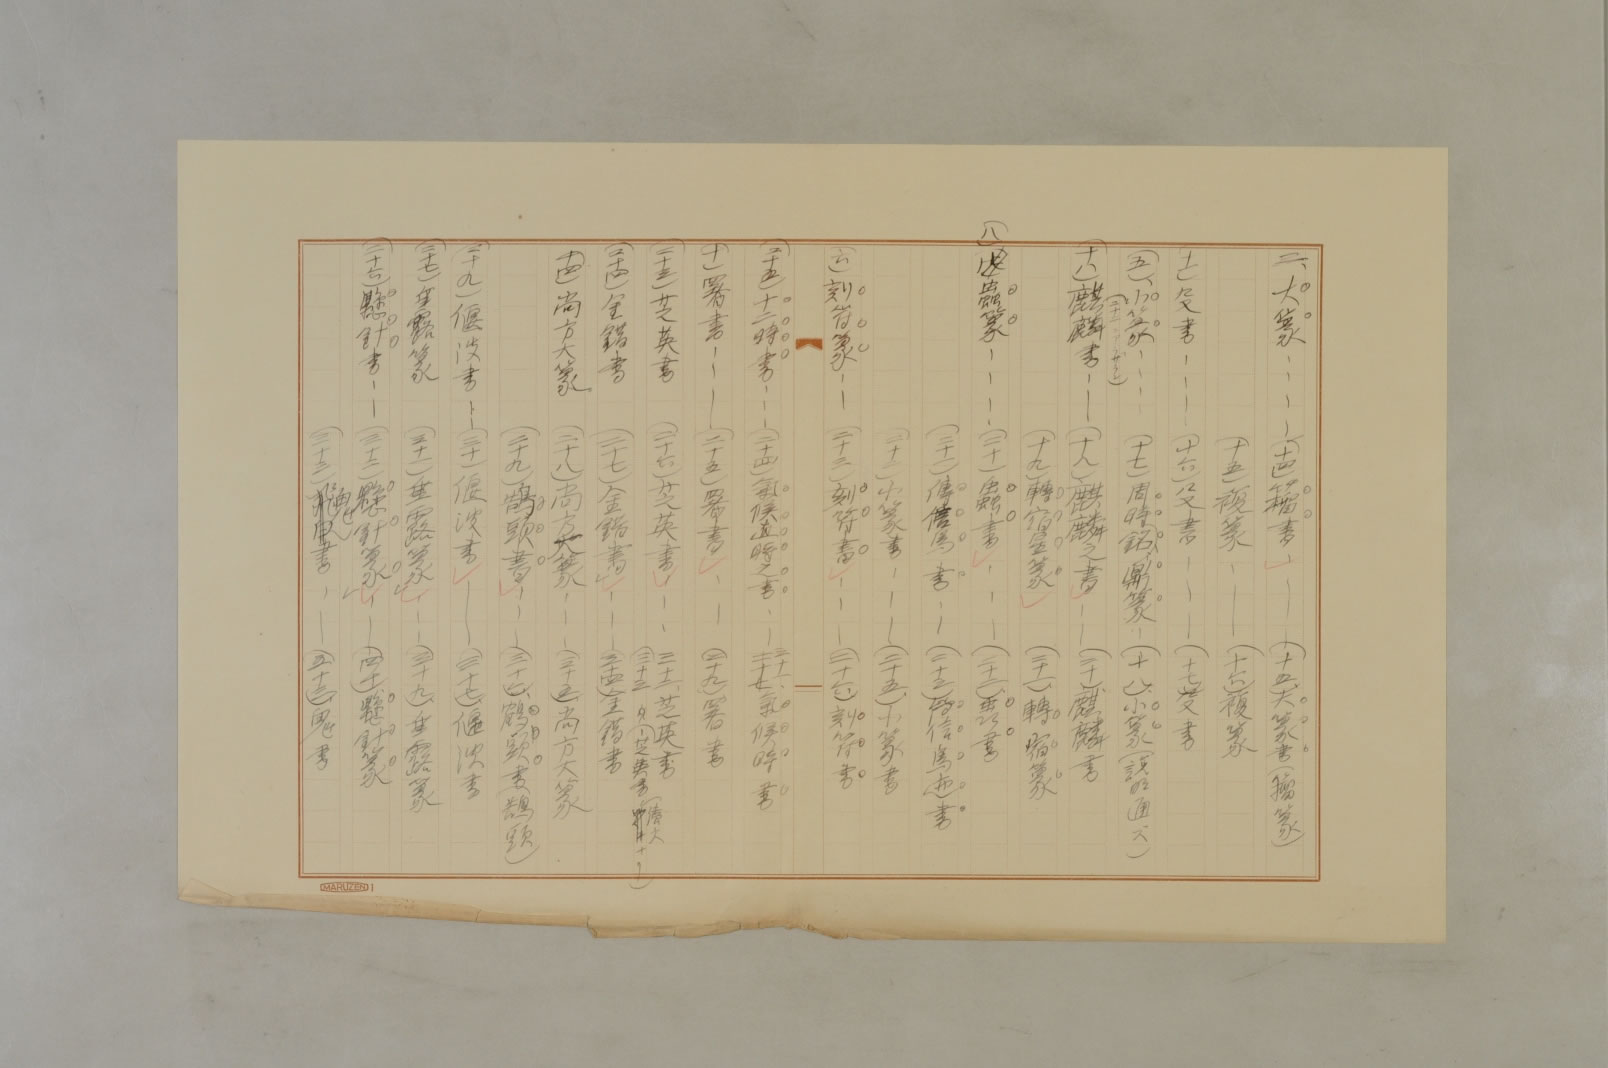 二、大篆ーーー(十四)籀書ーー(十五)大篆書(籀篆)
(十五)複篆ーー(十六)複篆
十一)殳書ーーー(十六)殳書ーーー(十七)殳書
(五)小篆ーーー(十七)周時銘鼎篆ー(十八)小篆
(十八)麒麟書ーー(十八)麒麟之書ー(二十)麒麟書
(十九)轉宿星篆(二十一)轉宿篆
(八)虫蟲篆ーーーー(二十)蟲書ーーー(二十二)蟲書
(二十一)傳信鳥書ーー(二十三)傳信鳥迹書
(二十二)小篆書ーー(二十五)小篆書
(六)刻符篆ーー(二十三)刻符書ーー(二十六)刻符書
(二十五)十二時書ーーー(二十四)氣候直時之書ーー氣候時書
(十)署書ーーー(二十五)署書ーー(二十九)署書
(二十三)芝英書(二十六)芝英書ーー芝英書
(二十四)金錯書(二十七)金錯書ーー金錯書
(十四)尚方大篆(二十八)尚方大篆ーーー(三十五)尚方大篆
(二十九)鶴頭書ーーー(三十六)鶴頭書(鵠頭)
(二十九)偃波書ーー(三十)偃波書ーー(三十七)偃波書
(二十七)垂露篆(三十一)垂露篆ーー(三十九)垂露篆
(二十六)懸針書ーー(三十二)懸針篆ーー(四十)懸針篆
(三十三)書ーーー(五十三)鬼書
MARUZEN